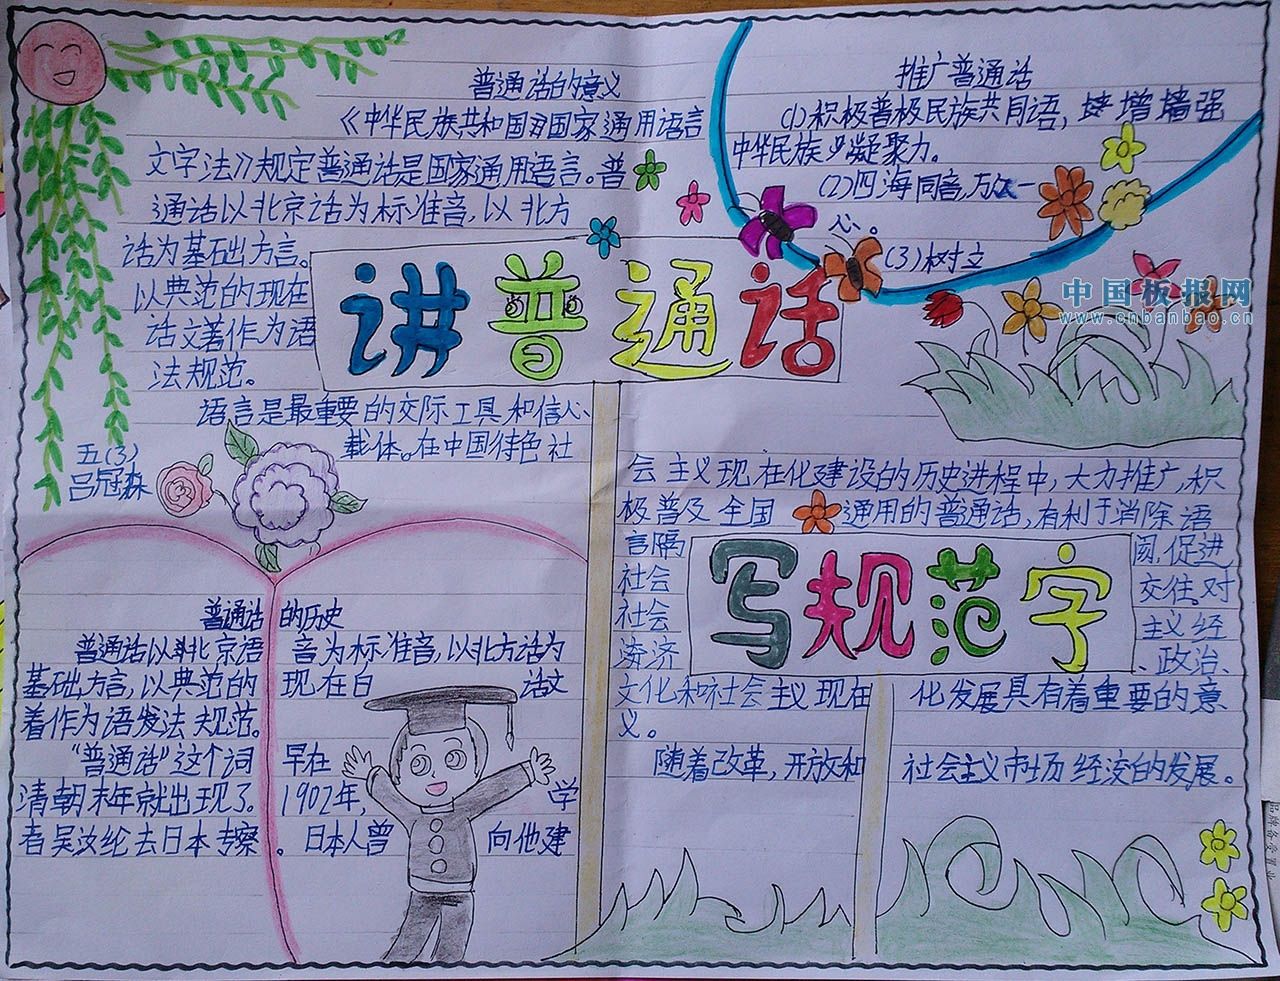 普通话的意义
《中华民族共和国国家通用语言
文字法》规定普通话是国家通用语言。普
通话以北京话为标准音,以北方
话为基础方言。
以典范的现在
话文著作为语
法规范。
语言是最重要的交际工具和信心
载体。在中国特色社
五(3)
吕冠森
推广普通话
(1)积极普极民族共同语, 增墙强
中华民族 凝聚力。
(2)四海同音,万众一
心。
(3)树立
中国板报网
www.cnbanbao.cn
讲普通话
会主义现在化建设的历史进程中,大力推广,积
极普及全国 通用的普通话,有利于消除语
言隔 阂,促进
社会 交往。对
社会 主义经
济济 、政治、
文化和社会主义现在 化发展具有着重要的意
义。
随着改革,开放和 社会主义市场经济的发展。
写规范字
普通话的历史
普通话以北京语 音为标准音,以北方话为
基础方言,以典范的 现在白 话文
着作为语发法规范。
“普通话”这个词 早在
清朝末年就出现了。 1902年, 学
者吴汝纶去日本专察。 日本人曾 向他建